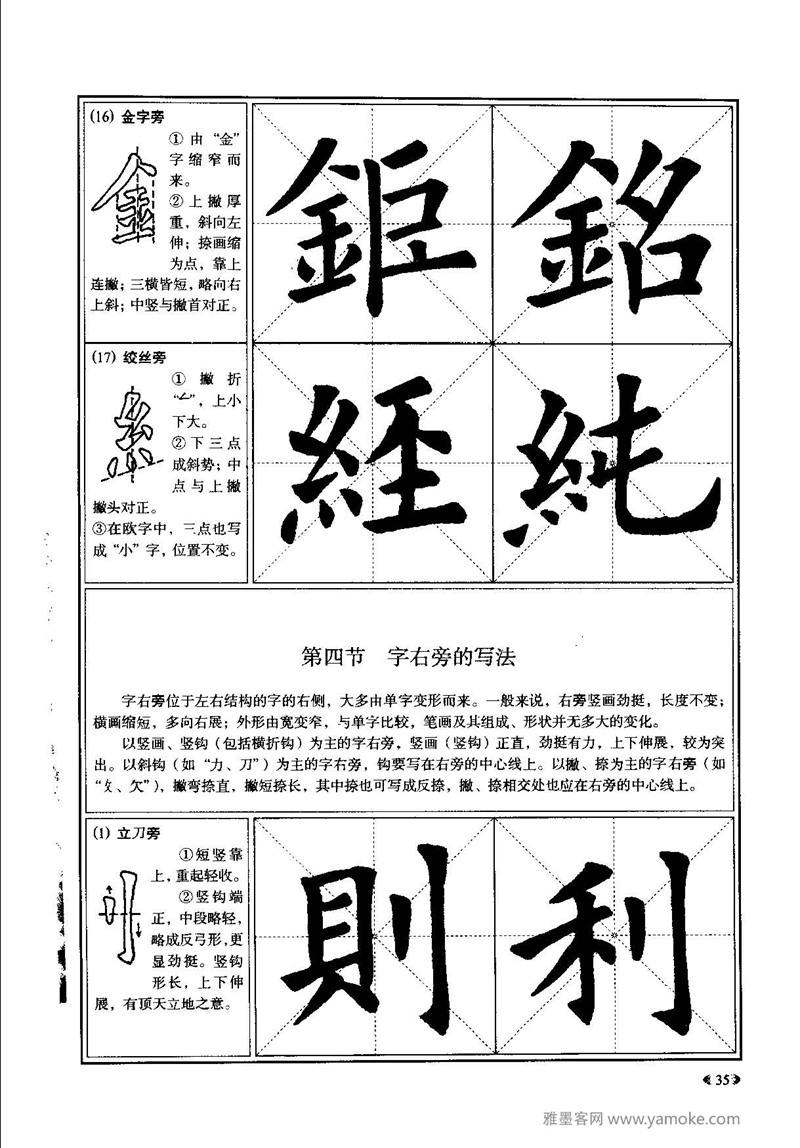 (16) 金字旁
①由“金”
字缩窄而
来。
②上撇厚
重，斜向左
伸；捺画缩
为点，靠上
连撇；三横皆短，略向右
上斜；中竖与撇首对正。
鉅 銘
(17) 绞丝旁
① 撇折
“𠃋”，上小
下大。
②下三点
成斜势；中
点与上撇
撇头对正。
③在欧字中，三点也写
成“小”字，位置不变。
經 純
第四节 字右旁的写法
字右旁位于左右结构的字的右侧，大多由单字变形而来。一般来说，右旁竖画劲挺，长度不变；
横画缩短，多向右展；外形由宽变窄，与单字比较，笔画及其组成、形状并无多大的变化。
以竖画、竖钩（包括横折钩）为主的字右旁，竖画（竖钩）正直，劲挺有力，上下伸展，较为突
出。以斜钩（如“力、刀”）为主的字右旁，钩要写在右旁的中心线上。以撇、捺为主的字右旁（如
“攵、欠”），撇弯捺直，撇短捺长，其中捺也可写成反捺，撇、捺相交处也应在右旁的中心线上。
(1) 立刀旁
①短竖靠
上，重起轻收。
②竖钩端
正，中段略轻，
略成反弓形，更
显劲挺。竖钩
形长，上下伸
展，有顶天立地之意。
則 利
35
雅墨客网 www.yamoke.com